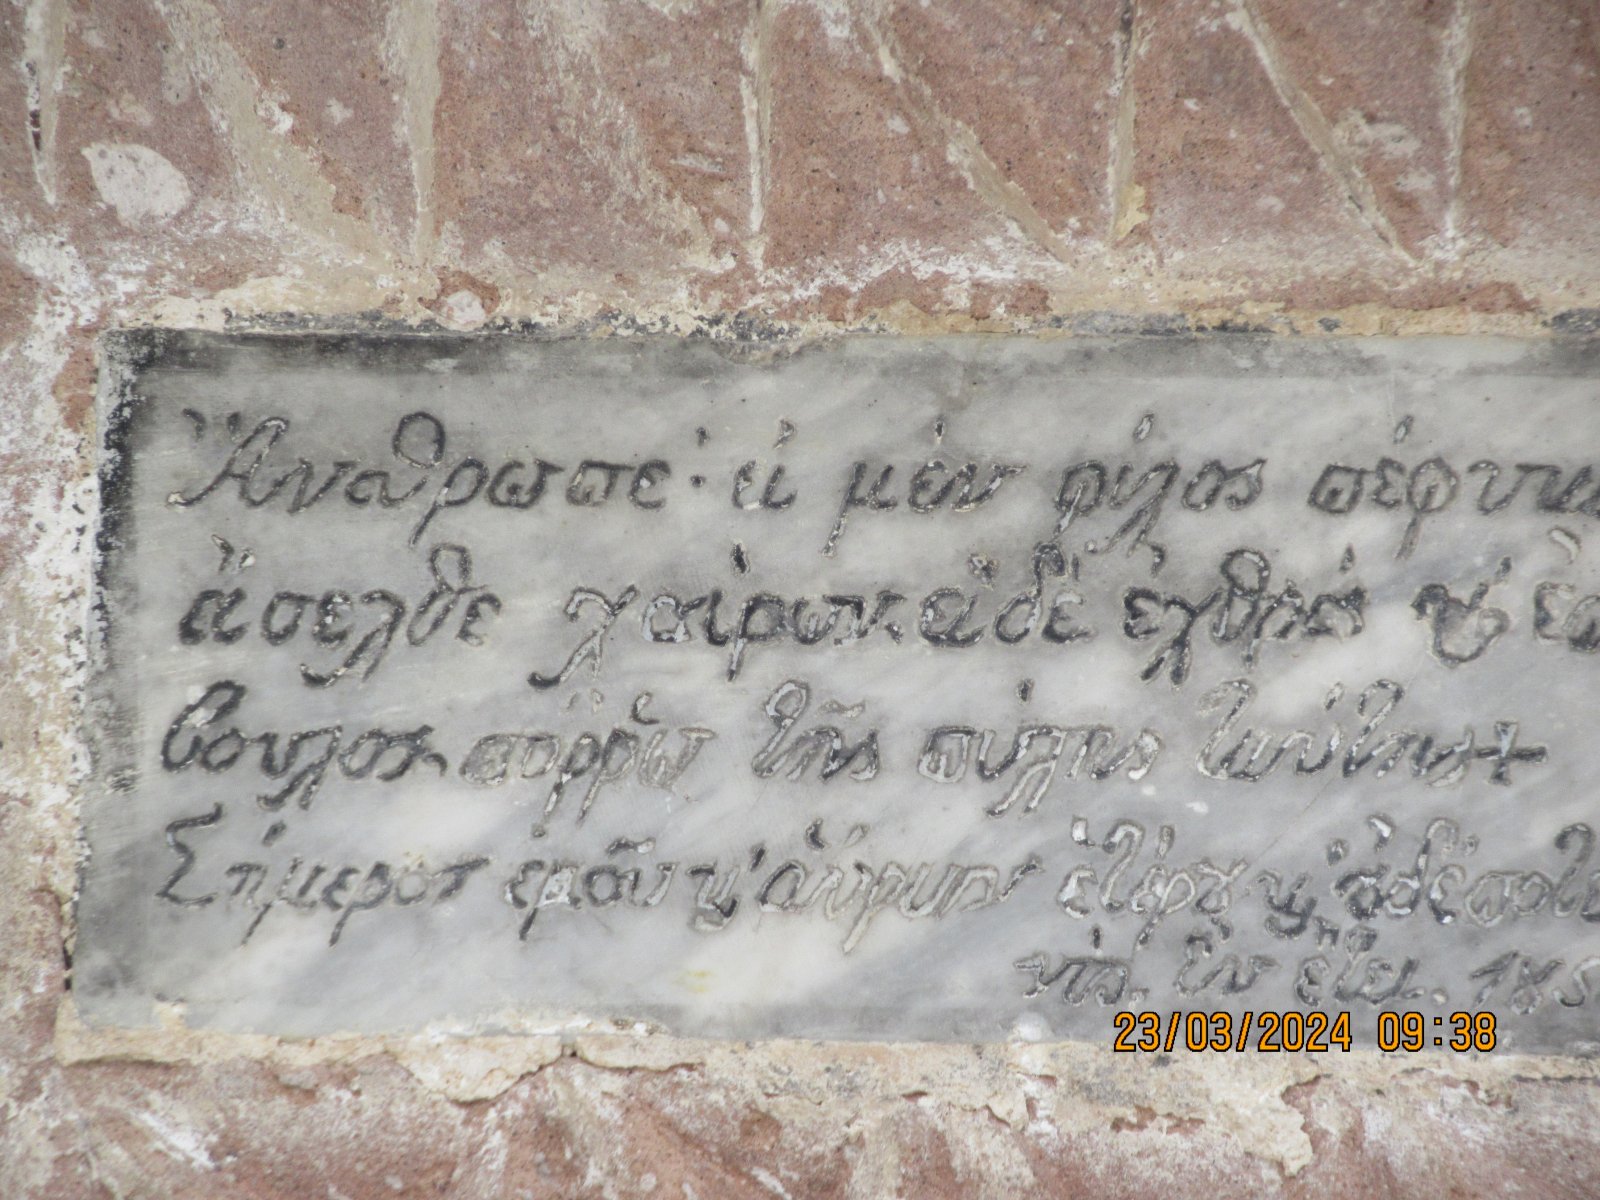 Ἄναθρωπε· εἰ μὲν φίλος πέφυκα
ἄσελθε χαίρων. ἀ δὲ ἐχθρὸς
βουλος πόρρω τῆς πύλης ταύτης +
Σήμερον ἐμοῦ κ' αὔριον ἑτέρου κ
ἔτει. 185
23/03/2024 09:38